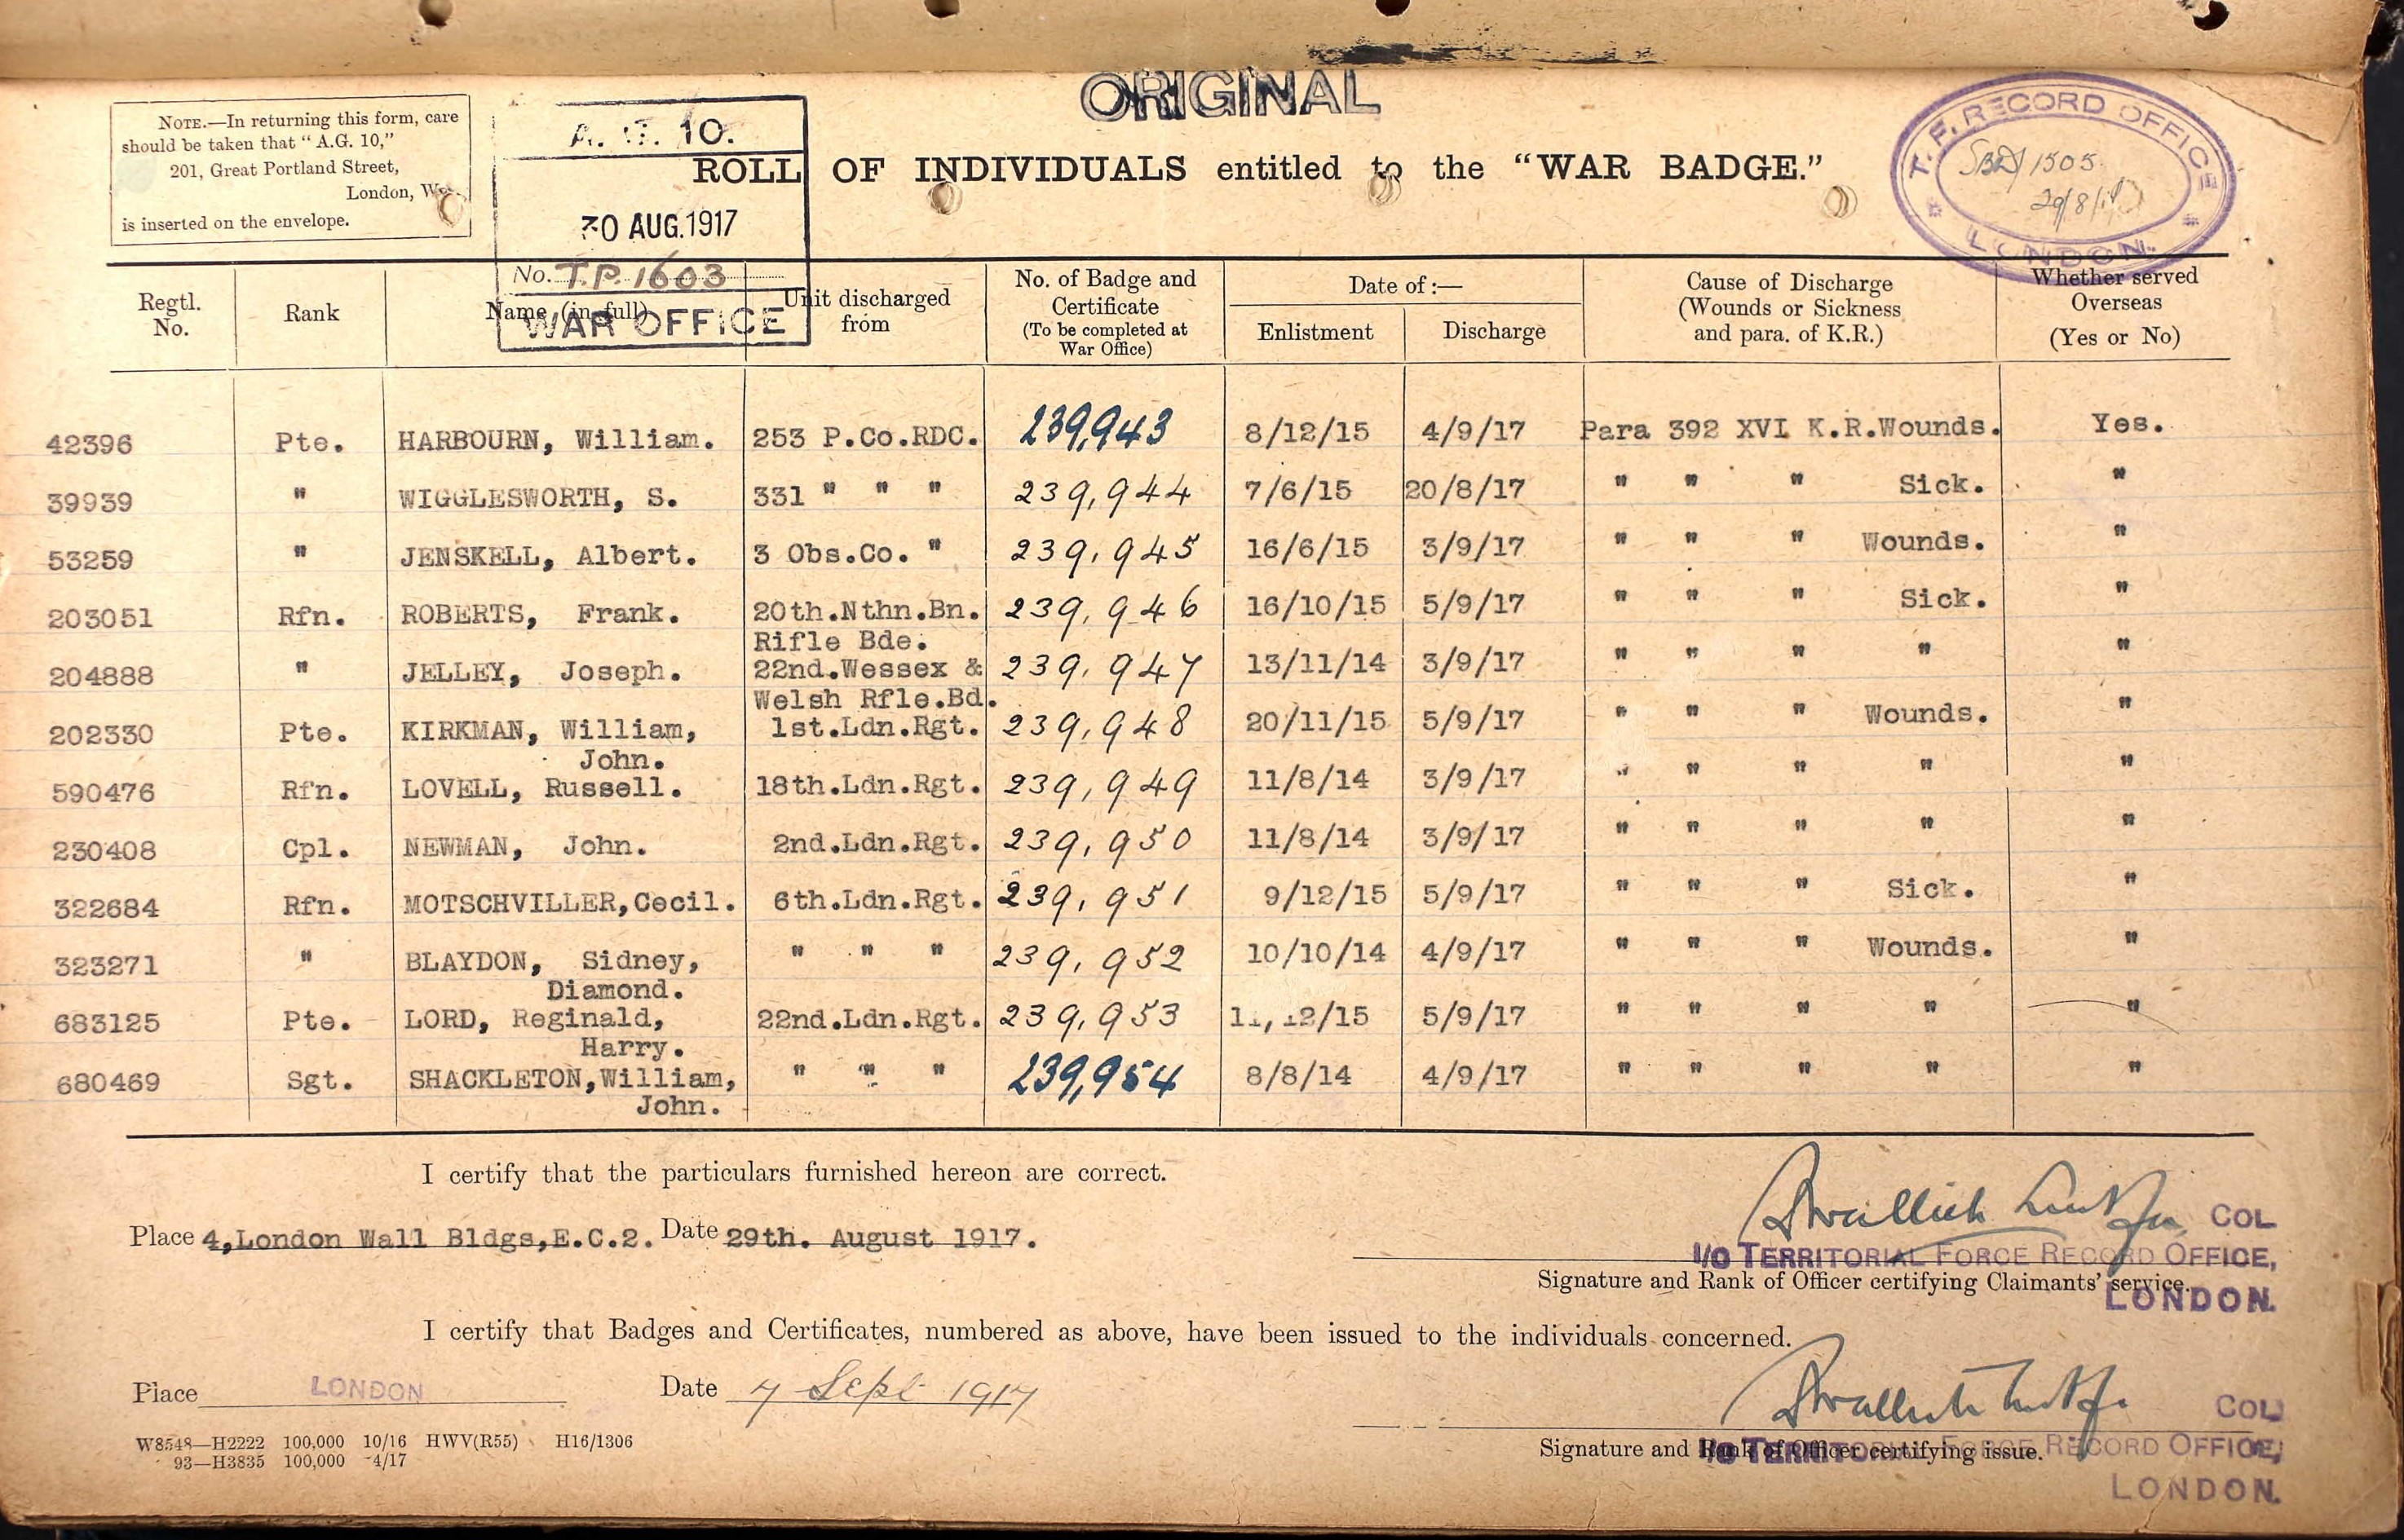 ORIGINAL
NOTE.—In returning this form, care
should be taken that "A.G. 10,"
201, Great Portland Street,
London, W.
is inserted on the envelope.
A. G. 10.
30 AUG.1917
No. T.P. 1603
WAR OFFICE
ROLL OF INDIVIDUALS entitled to the "WAR BADGE."
T. F. RECORD OFFICE
1505
29/8/17
LONDON.
Regtl. No. Rank Name (in full) Unit discharged from No. of Badge and Certificate (To be completed at War Office) Date of :— Enlistment Discharge Cause of Discharge (Wounds or Sickness and para. of K.R.) Whether served Overseas (Yes or No)
42396 Pte. HARBOURN, William. 253 P.Co.RDC. 239,943 8/12/15 4/9/17 Para 392 XVI K.R.Wounds. Yes.
39939 " WIGGLESWORTH, S. 331 " " " 239,944 7/6/15 20/8/17 " " " Sick. "
53259 " JENSKELL, Albert. 3 Obs.Co. " 239,945 16/6/15 3/9/17 " " " Wounds. "
203051 Rfn. ROBERTS, Frank. 20th.Nthn.Bn. 239,946 16/10/15 5/9/17 " " " Sick. "
Rifle Bde.
204888 " JELLEY, Joseph. 22nd.Wessex & 239,947 13/11/14 3/9/17 " " " " "
Welsh Rfle.Bd.
202330 Pte. KIRKMAN, William, 1st.Ldn.Rgt. 239,948 20/11/15 5/9/17 " " " Wounds. "
John.
590476 Rfn. LOVELL, Russell. 18th.Ldn.Rgt. 239,949 11/8/14 3/9/17 " " " " "
230408 Cpl. NEWMAN, John. 2nd.Ldn.Rgt. 239,950 11/8/14 3/9/17 " " " " "
322684 Rfn. MOTSCHVILLER,Cecil. 6th.Ldn.Rgt. 239,951 9/12/15 5/9/17 " " " Sick. "
323271 " BLAYDON, Sidney, " " " 239,952 10/10/14 4/9/17 " " " Wounds. "
Diamond.
683125 Pte. LORD, Reginald, 22nd.Ldn.Rgt. 239,953 11/12/15 5/9/17 " " " " "
Harry.
680469 Sgt. SHACKLETON,William, " " " 239,954 8/8/14 4/9/17 " " " " "
John.
I certify that the particulars furnished hereon are correct.
Place 4,London Wall Bldgs,E.C.2. Date 29th. August 1917.
COL
I/O TERRITORIAL FORCE RECORD OFFICE,
Signature and Rank of Officer certifying Claimants' service.
LONDON.
I certify that Badges and Certificates, numbered as above, have been issued to the individuals concerned.
Place LONDON Date 7 Sept 1917
COL
I/O TERRITORIAL FORCE RECORD OFFICE,
Signature and Rank of Officer certifying issue.
LONDON.
W8548—H2222 100,000 10/16 HWV(R55) H16/1306
93—H3835 100,000 4/17